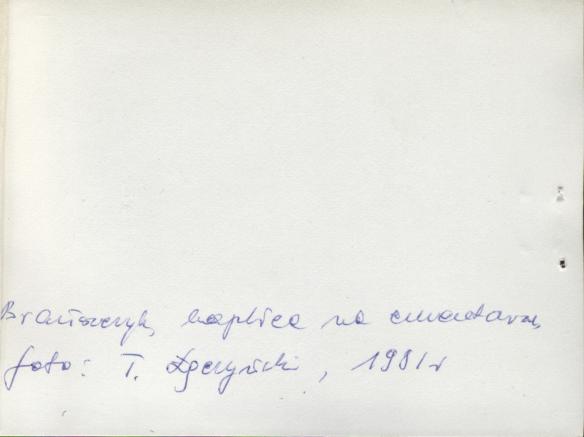 Brańszczyk, kaplica na cmentarzu,
foto: T. Zgczyński, 1981 r